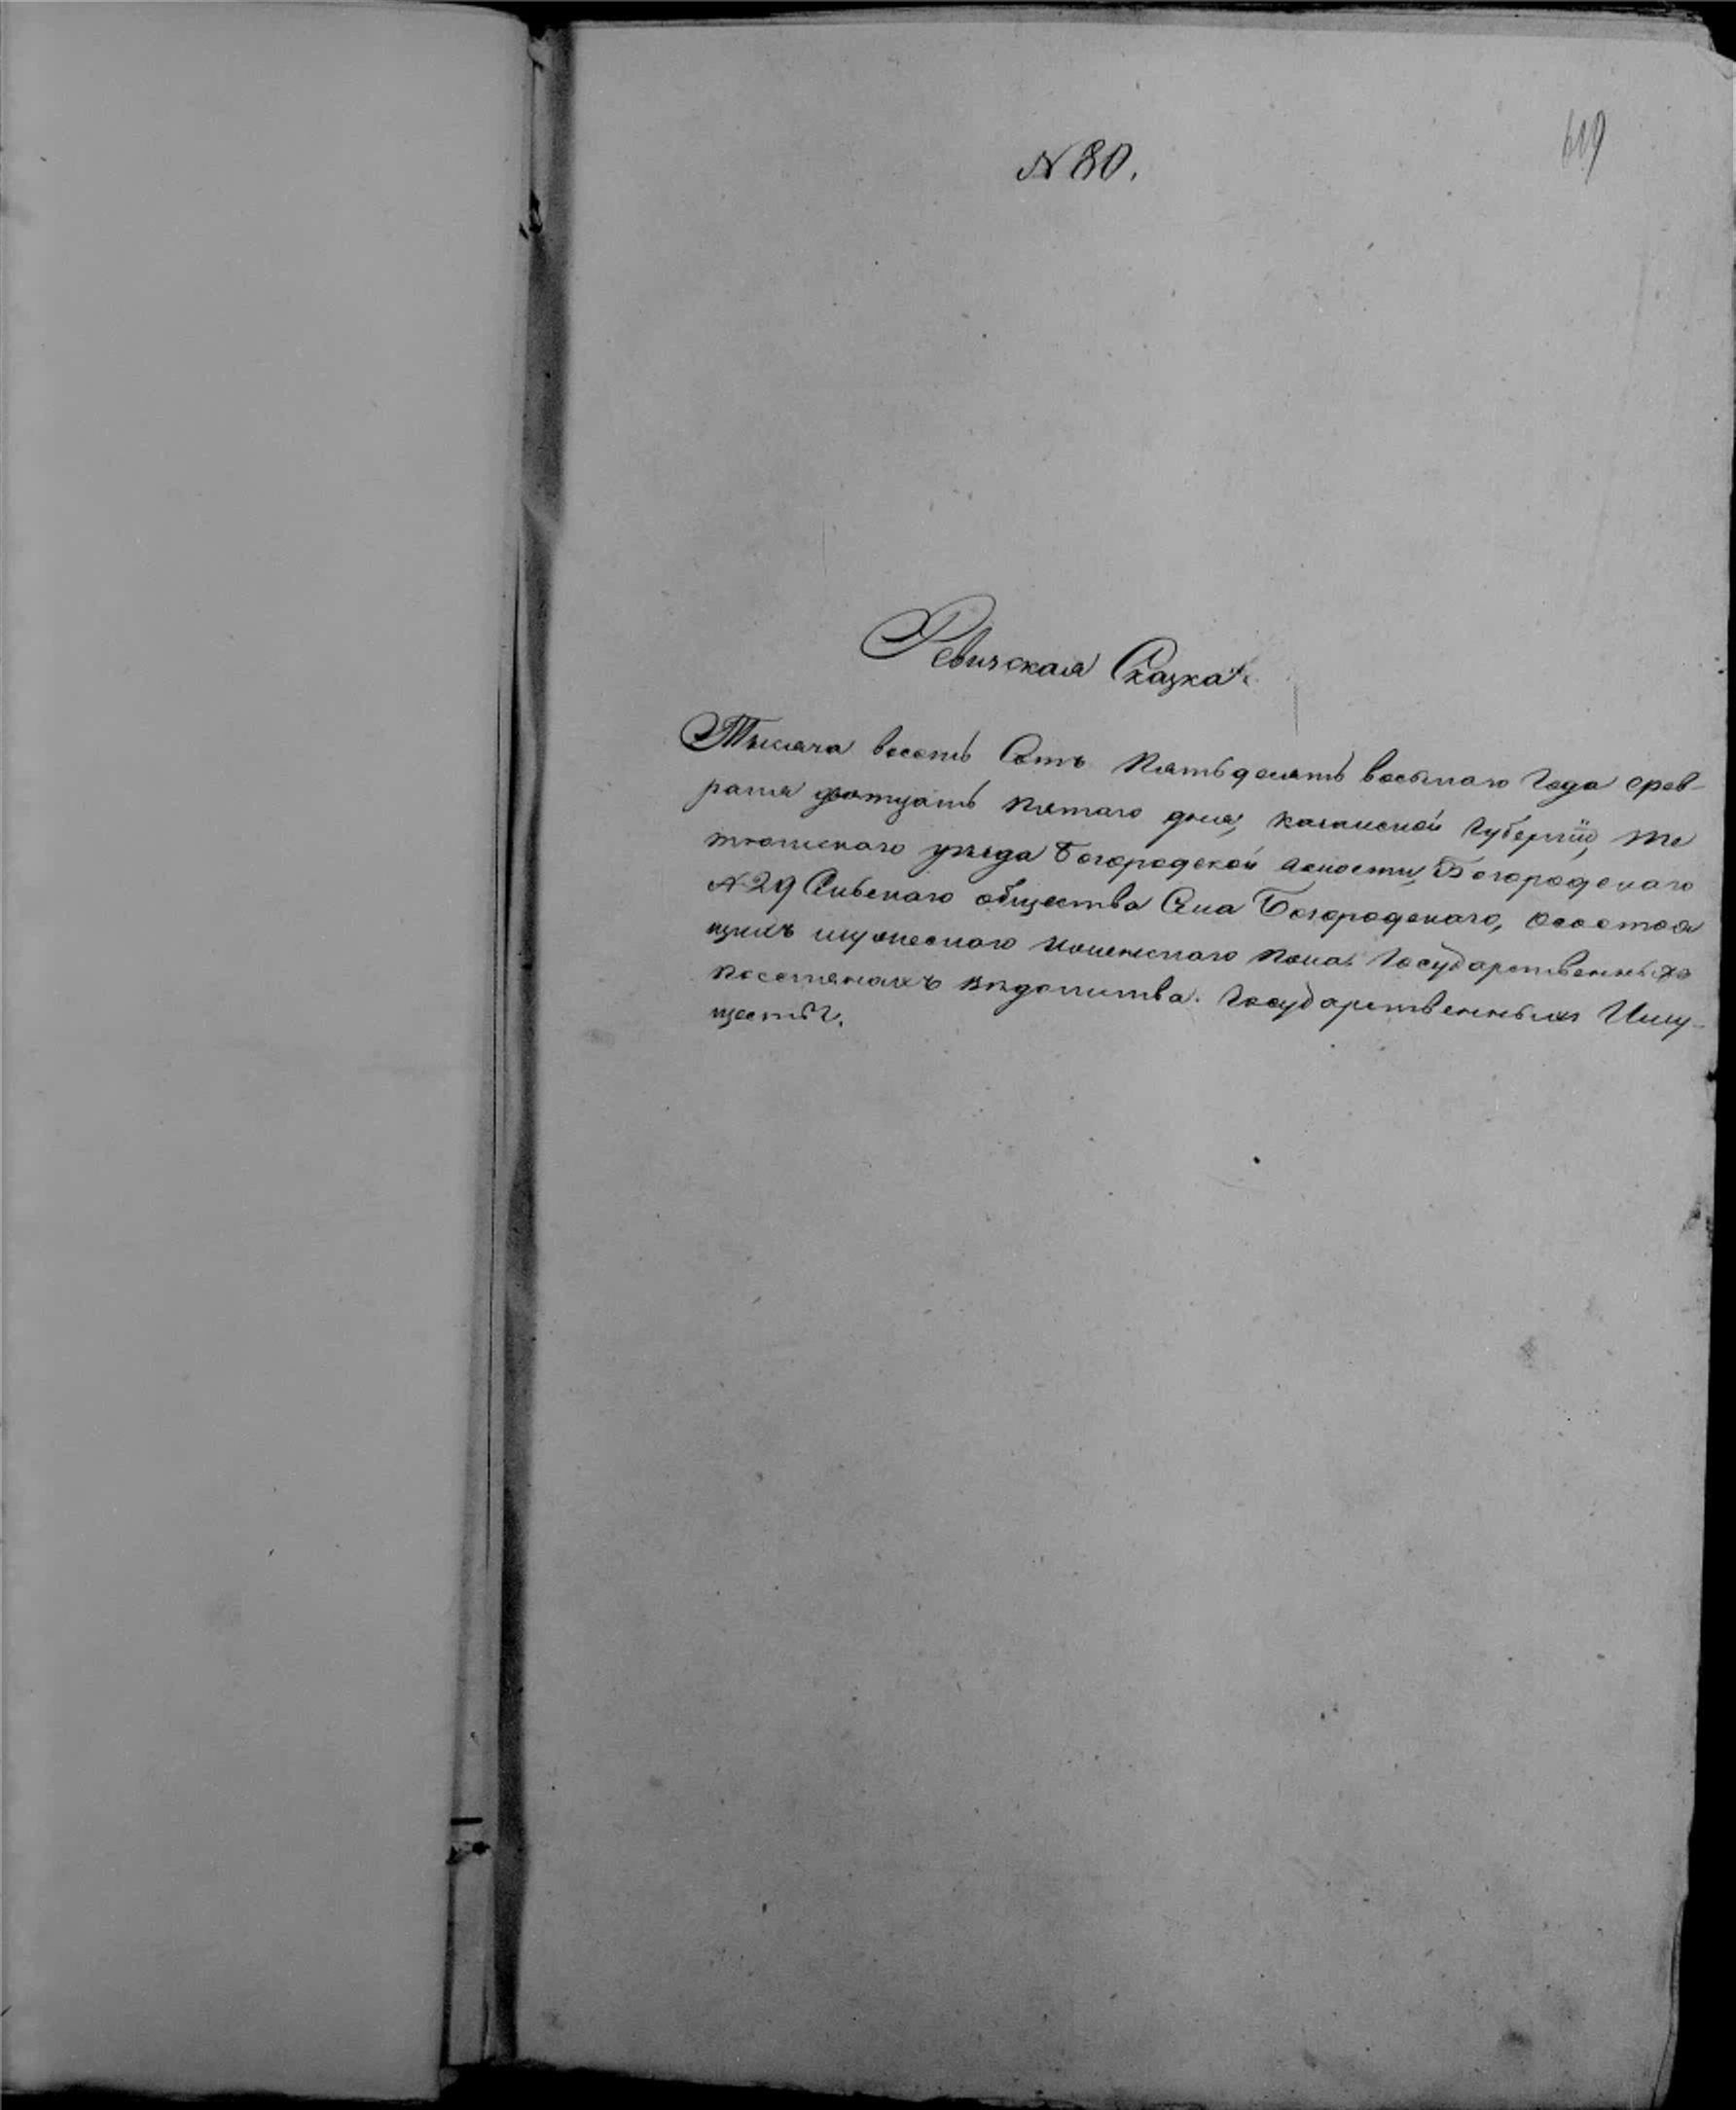 N 80.
619
Ревизская Сказка.
Тысяча восемь Сотъ Пятьдесятъ восьмаго Года Фев-
раля дватцать пятаго дня, Казанской Губерніи, Те
тюшскаго уѣзда Богородской волости, Богородскаго
N 29 Сельскаго общества Села Богородскаго, о состоя
щихъ мужескаго и женскаго пола. Государственныхъ
поселянахъ вѣдомства. Государственныхъ Иму-
ществъ.